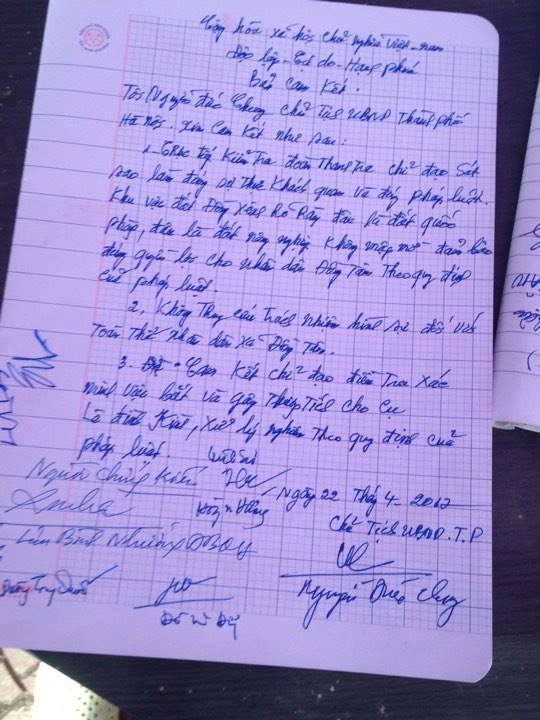 Cộng hòa xã hội chủ nghĩa việt-nam
Độc lập - Tự do - Hạnh phúc
Bản Cam Kết.
Tôi Nguyễn đức Chung chủ tịch UBND Thành phố
Hà nội. xin Cam Kết như sau:
1. Trực tiếp Kiểm Tra đoàn Thanh Tra chỉ đạo Sát
sao làm đúng sự thật Khách quan và đúng pháp luật.
Khu vực đất Đồng Xênh Rõ Ràng đâu là đất quốc
phòng, đâu là đất nông nghiệp Không mập mờ đảm bảo
đúng quyền lợi cho nhân dân Đồng Tâm Theo quy định
của pháp luật.
2, Không Truy cứu Trách nhiệm hình sự đối với
Toàn Thể Nhân dân xã Đồng Tâm.
3. Cam Kết chỉ đạo điều Tra Xác
minh việc bắt và gây Thương Tích cho Cụ
Lê đình Kình, Xử lý nghiêm Theo quy định của
pháp luật.
Người chứng Kiến
Ngày 22 Thg 4-2017
Chủ Tịch UBND.T.P
Lưu Bình Nhưỡng
Nguyễn Đức Chung